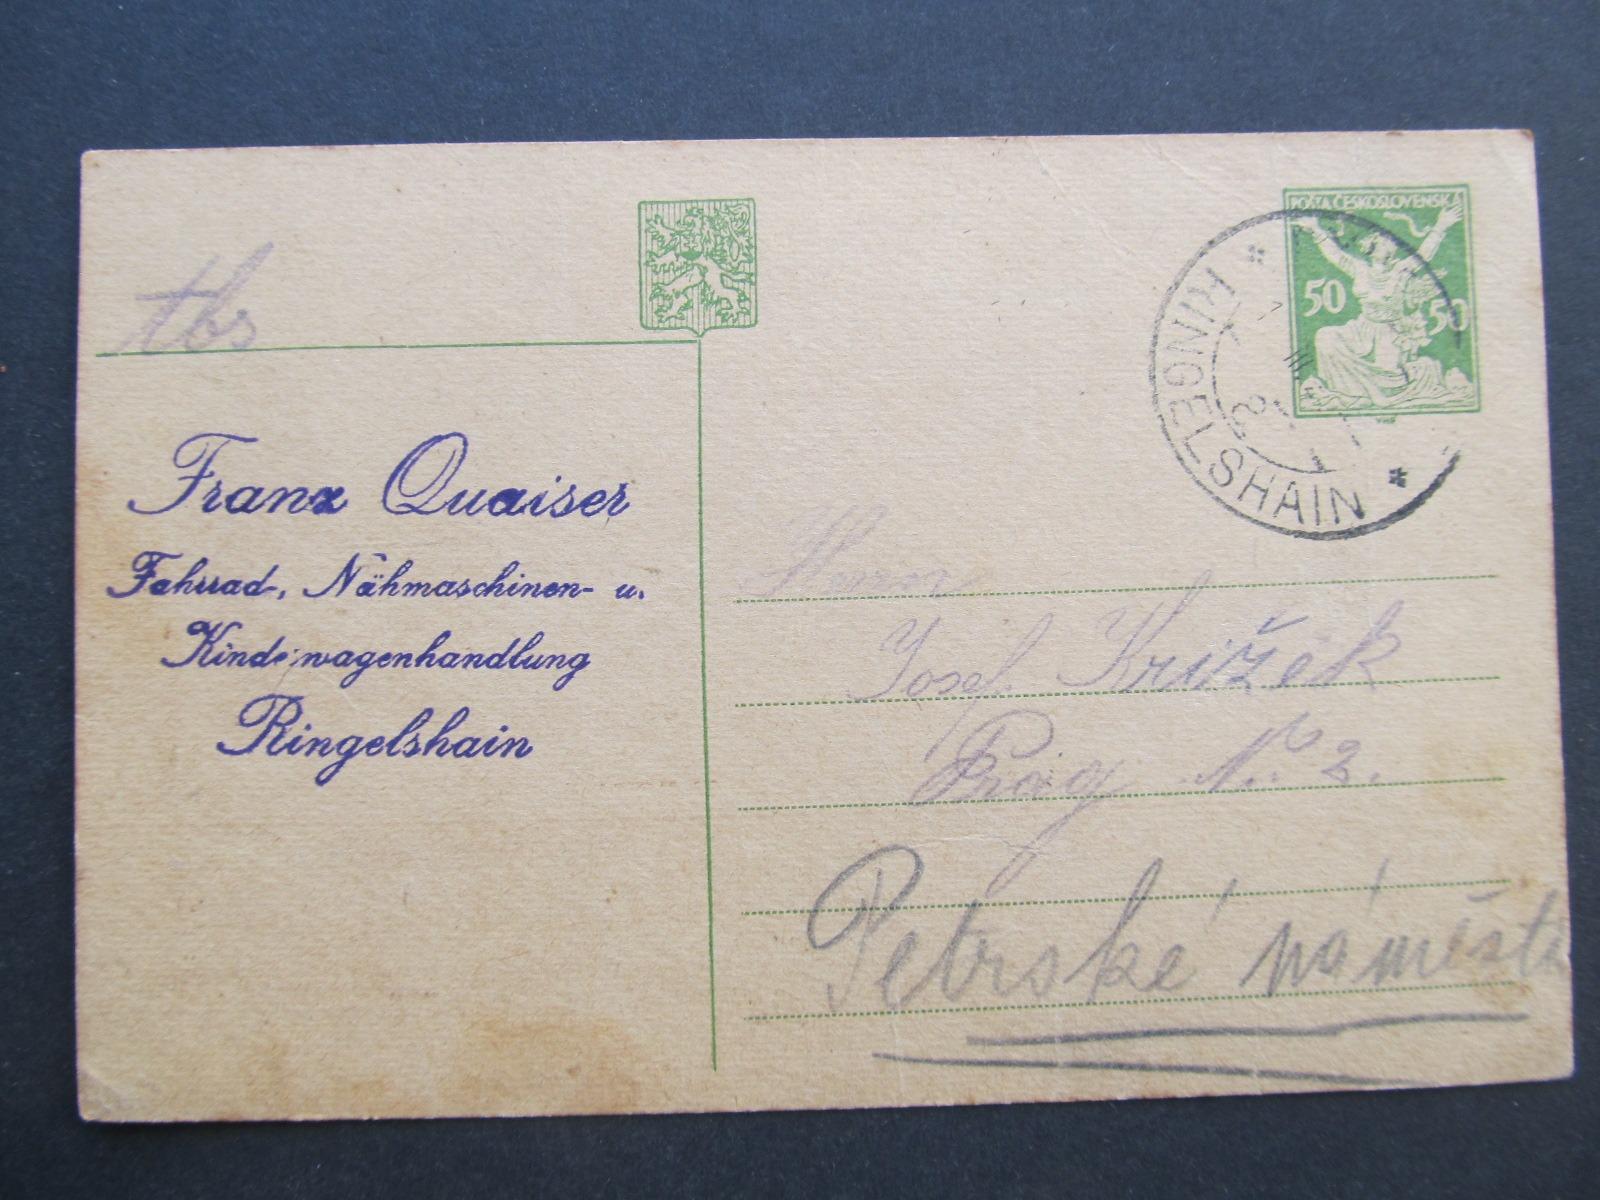 POŠTA ČESKOSLOVENSKÁ
50 50
* RINGELSHAIN *
Franz Quaiser
Fahrrad-, Nähmaschinen- u.
Kinderwagenhandlung
Ringelshain
Herrn
Josef Křižek
Prag N: 2.
Petrské náměstí